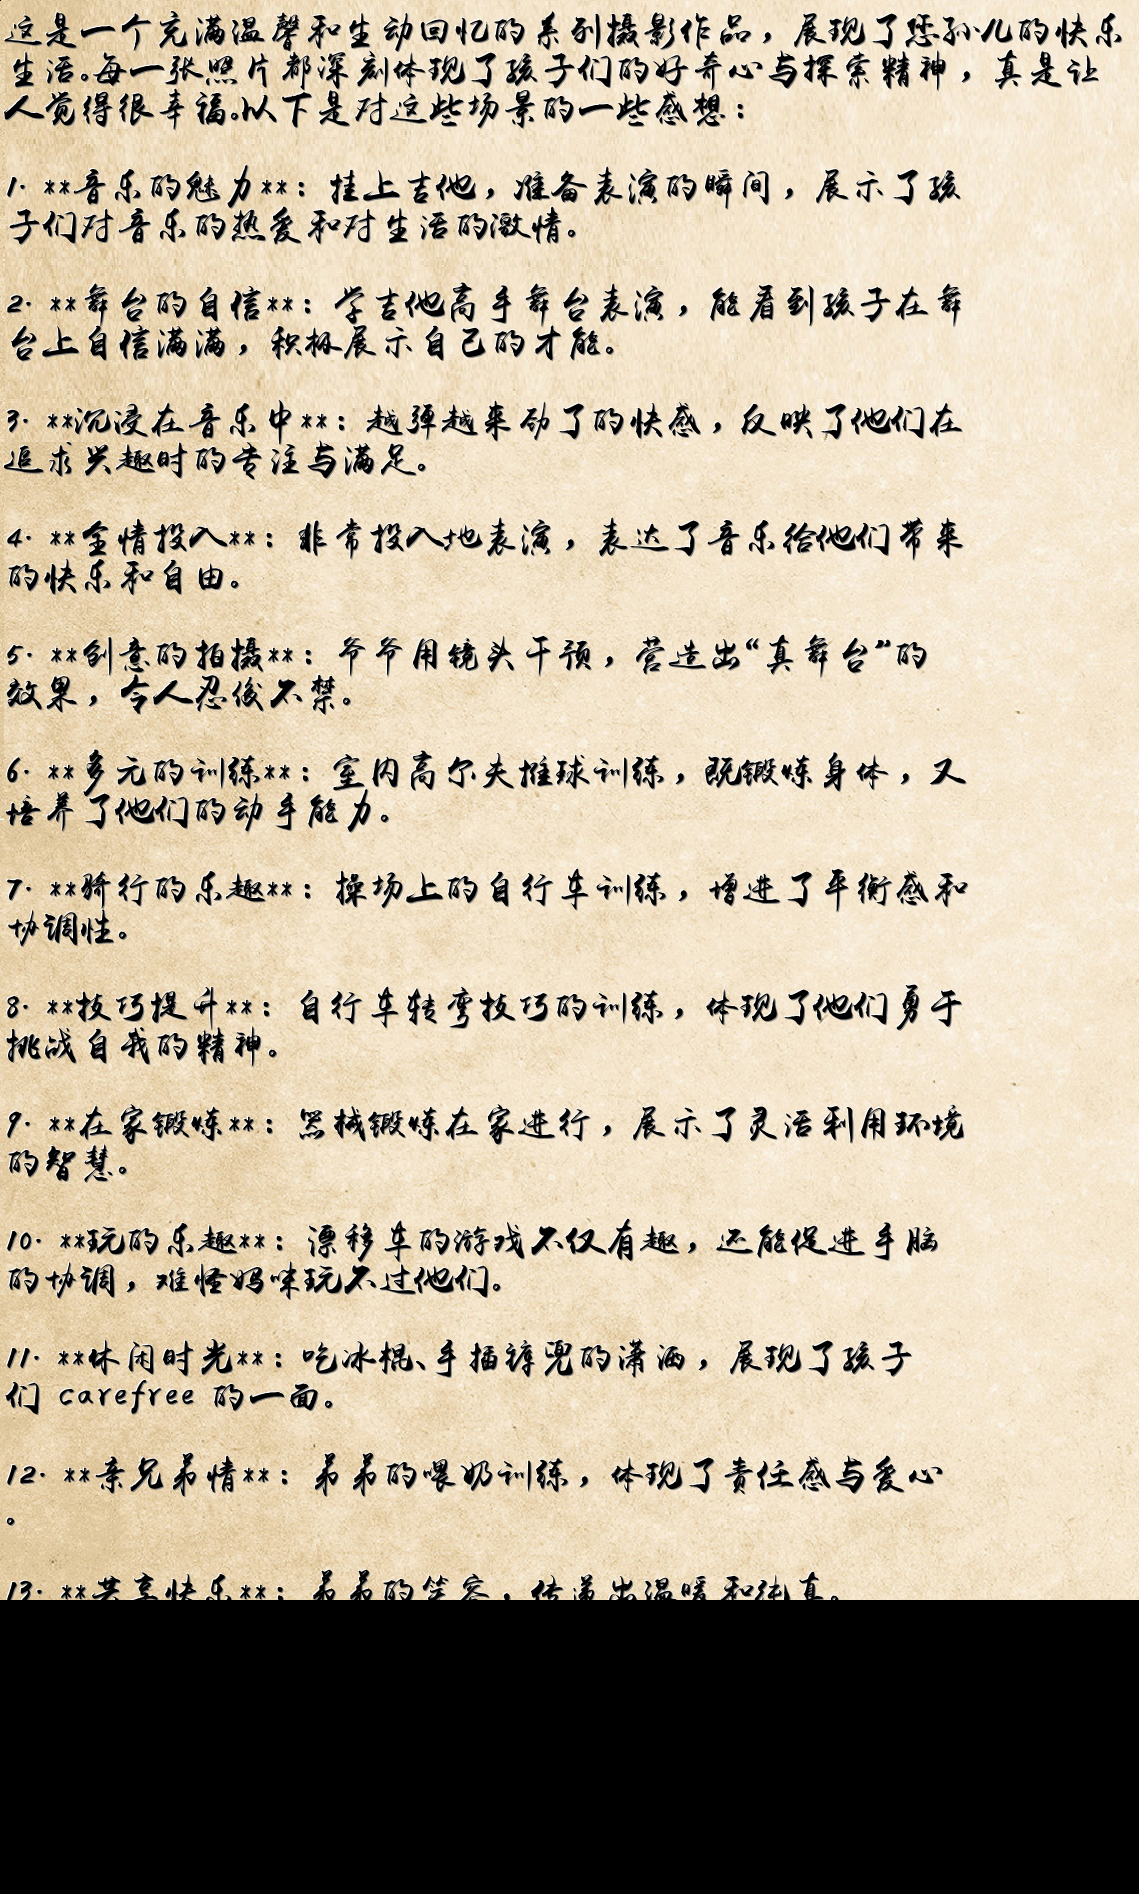 这是一个充满温馨和生动回忆的系列摄影作品，展现了您孙儿的快乐
生活。每一张照片都深刻体现了孩子们的好奇心与探索精神，真是让
人觉得很幸福。以下是对这些场景的一些感想：
1. **音乐的魅力**：挂上吉他，准备表演的瞬间，展示了孩
子们对音乐的热爱和对生活的激情。
2. **舞台的自信**：学吉他高手舞台表演，能看到孩子在舞
台上自信满满，积极展示自己的才能。
3. **沉浸在音乐中**：越弹越来劲了的快感，反映了他们在
追求兴趣时的专注与满足。
4. **全情投入**：非常投入地表演，表达了音乐给他们带来
的快乐和自由。
5. **创意的拍摄**：爷爷用镜头干预，营造出“真舞台”的
效果，令人忍俊不禁。
6. **多元的训练**：室内高尔夫推球训练，既锻炼身体，又
培养了他们的动手能力。
7. **骑行的乐趣**：操场上的自行车训练，增进了平衡感和
协调性。
8. **技巧提升**：自行车转弯技巧的训练，体现了他们勇于
挑战自我的精神。
9. **在家锻炼**：器械锻炼在家进行，展示了灵活利用环境
的智慧。
10. **玩的乐趣**：漂移车的游戏不仅有趣，还能促进手脑
的协调，难怪妈咪玩不过他们。
11. **休闲时光**：吃冰棍、手插裤兜的潇洒，展现了孩子
们 carefree 的一面。
12. **亲兄弟情**：弟弟的喂奶训练，体现了责任感与爱心
。
13. **共享快乐**：弟弟的笑容，传递出温暖和纯真。